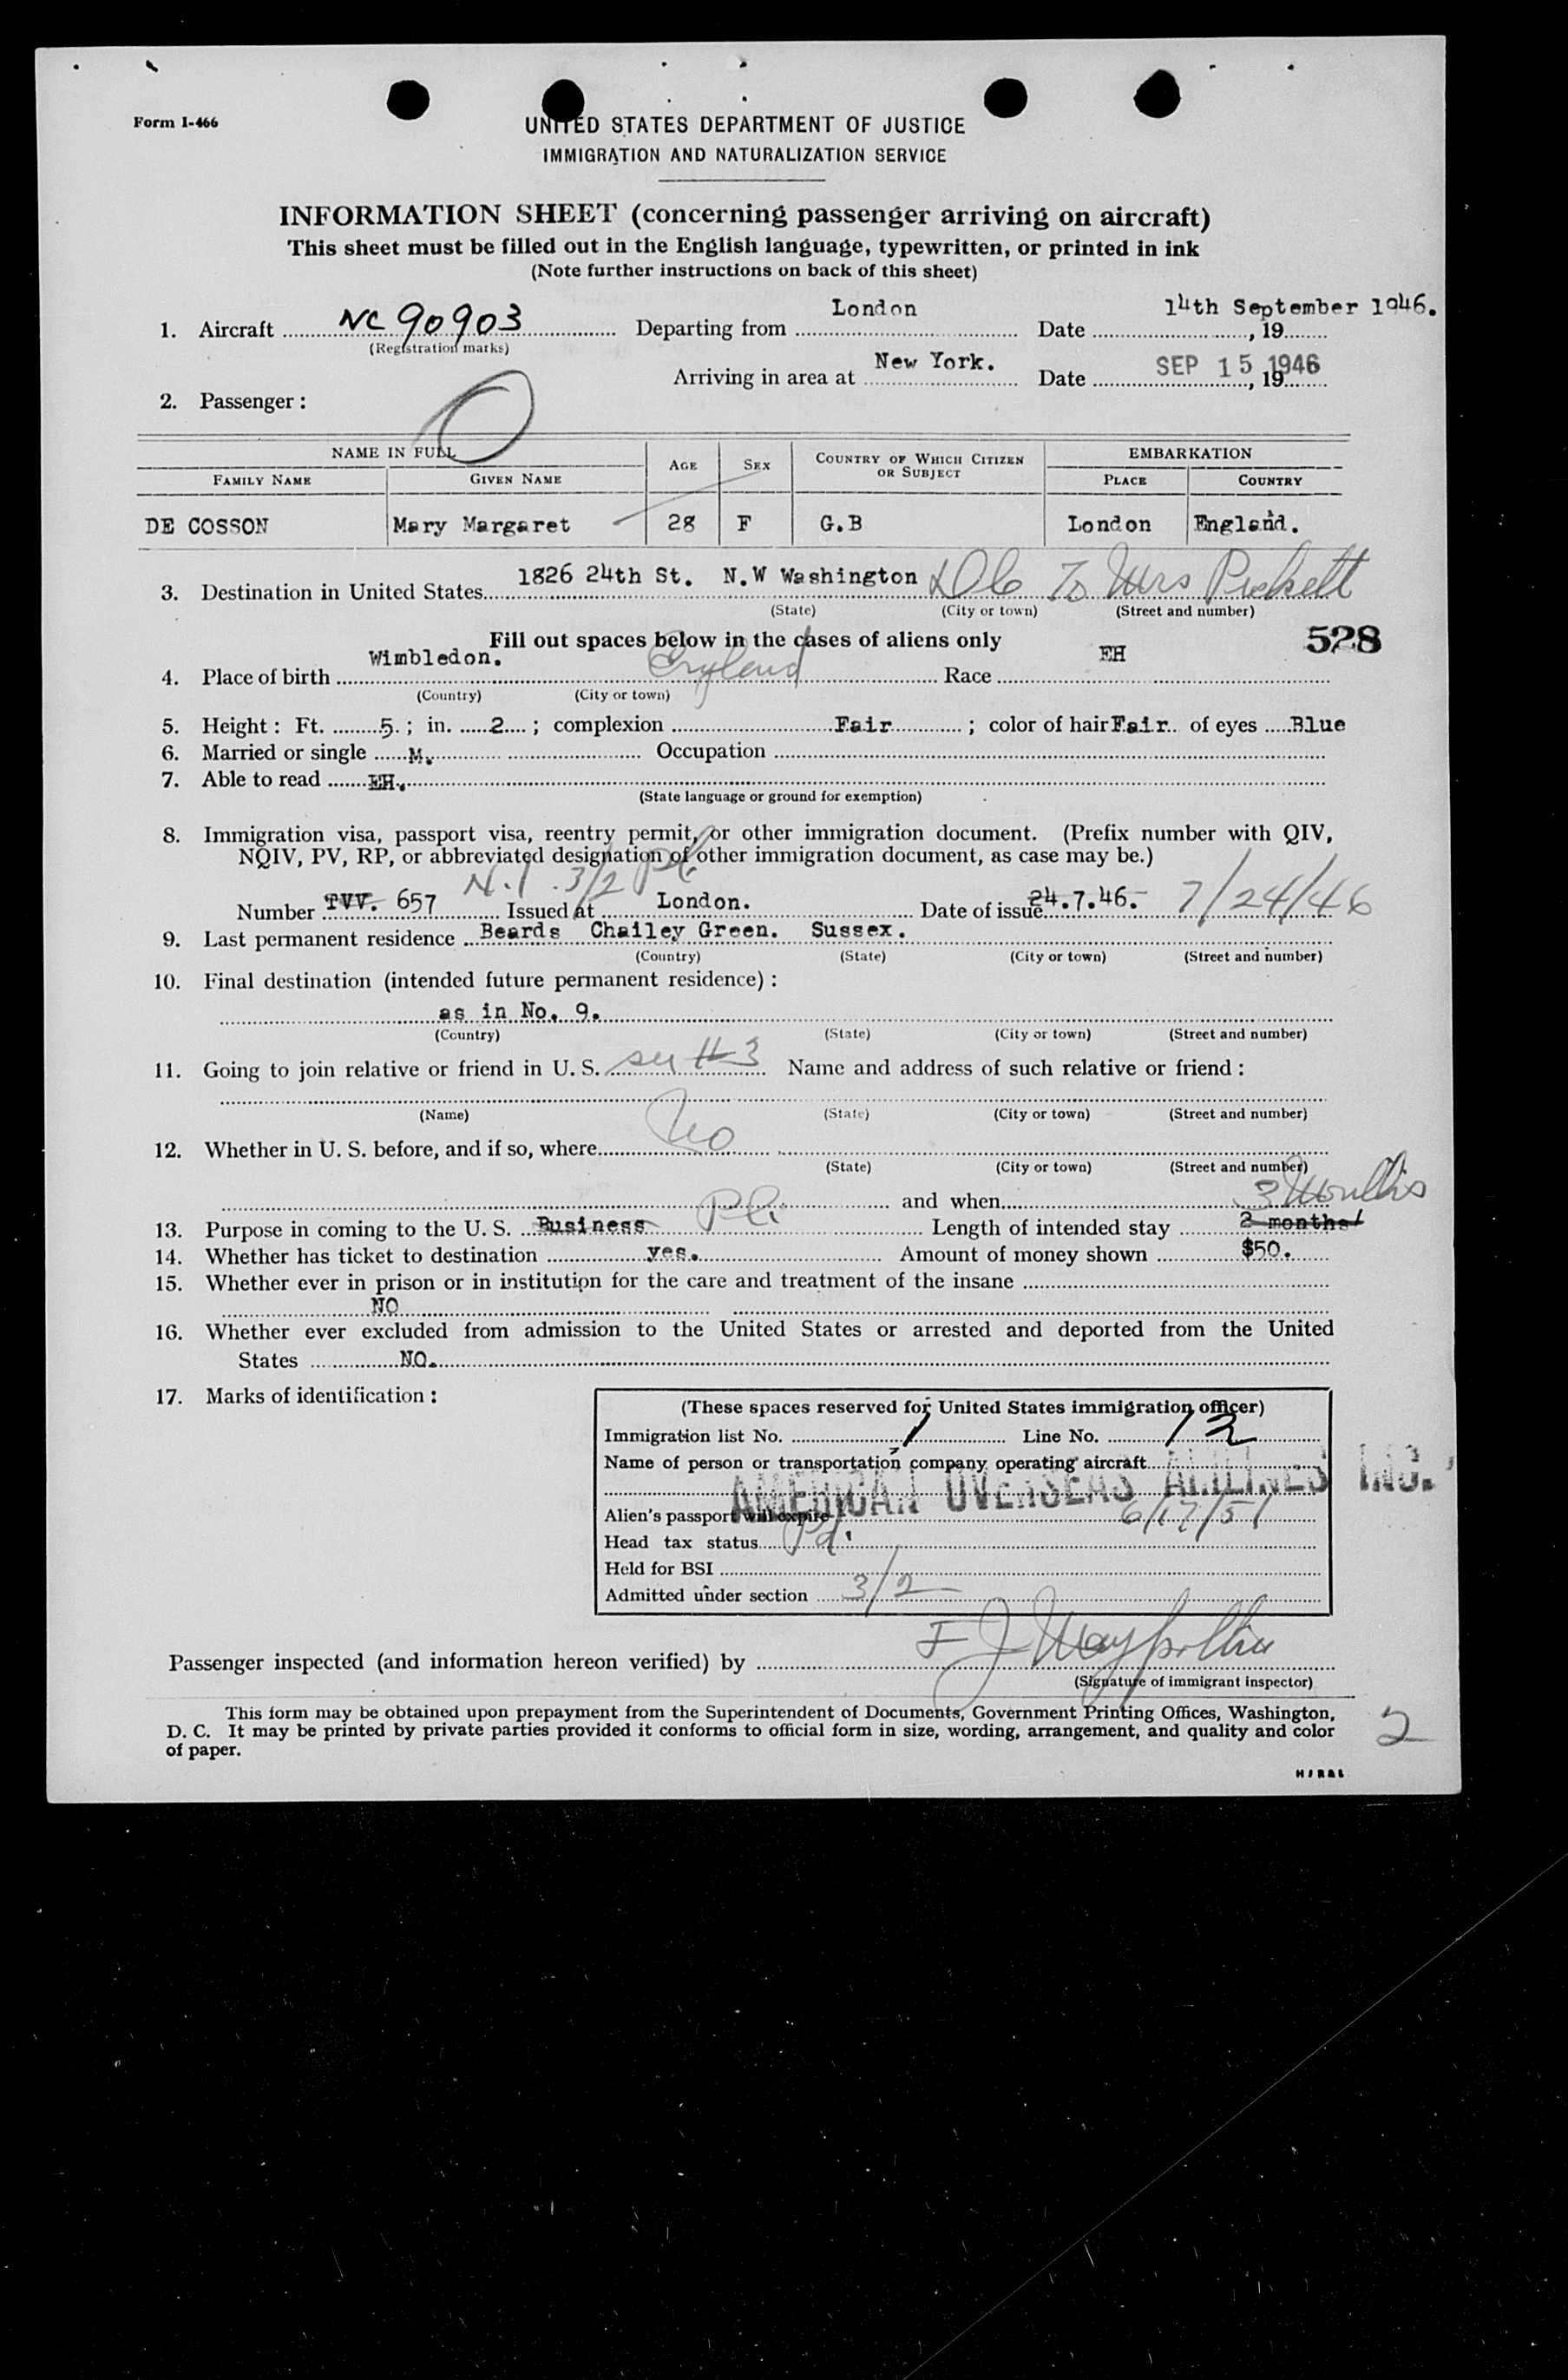 Form I-466
UNITED STATES DEPARTMENT OF JUSTICE
IMMIGRATION AND NATURALIZATION SERVICE
INFORMATION SHEET (concerning passenger arriving on aircraft)
This sheet must be filled out in the English language, typewritten, or printed in ink
(Note further instructions on back of this sheet)
1. Aircraft NC 90903 Departing from London Date 14th September 1946. , 19
(Registration marks)
Arriving in area at New York. Date SEP 15 1946 , 19
2. Passenger:
NAME IN FULL AGE SEX COUNTRY OF WHICH CITIZEN OR SUBJECT EMBARKATION
FAMILY NAME GIVEN NAME PLACE COUNTRY
DE COSSON Mary Margaret 28 F G.B London England.
3. Destination in United States 1826 24th St. N.W Washington DC To Mrs
(State) (City or town) (Street and number)
Fill out spaces below in the cases of aliens only 528
4. Place of birth Wimbledon. England Race EH
(Country) (City or town)
5. Height: Ft. 5 ; in. 2 ; complexion Fair ; color of hair Fair of eyes Blue
6. Married or single M. Occupation
7. Able to read EH.
(State language or ground for exemption)
8. Immigration visa, passport visa, reentry permit, or other immigration document. (Prefix number with QIV,
NQIV, PV, RP, or abbreviated designation of other immigration document, as case may be.)
N.I 3/2 Pl.
Number TVV. 657 Issued at London. Date of issue 24.7.46. 7/24/46
9. Last permanent residence Beards Chailey Green. Sussex.
(Country) (State) (City or town) (Street and number)
10. Final destination (intended future permanent residence):
as in No. 9.
(Country) (State) (City or town) (Street and number)
11. Going to join relative or friend in U. S. see #3 Name and address of such relative or friend:
(Name) (State) (City or town) (Street and number)
12. Whether in U. S. before, and if so, where No
(State) (City or town) (Street and number)
and when
3 Months
13. Purpose in coming to the U. S. Business Pl. Length of intended stay 2 months
14. Whether has ticket to destination yes. Amount of money shown $50.
15. Whether ever in prison or in institution for the care and treatment of the insane
NO
16. Whether ever excluded from admission to the United States or arrested and deported from the United
States NO.
17. Marks of identification:
(These spaces reserved for United States immigration officer)
Immigration list No. 1 Line No. 12
Name of person or transportation company operating aircraft
AMERICAN OVERSEAS AIRLINES INC.
Alien's passport will expire 6/17/51
Head tax status Pd.
Held for BSI
Admitted under section 3/2
Passenger inspected (and information hereon verified) by F J
(Signature of immigrant inspector)
This form may be obtained upon prepayment from the Superintendent of Documents, Government Printing Offices, Washington,
D. C. It may be printed by private parties provided it conforms to official form in size, wording, arrangement, and quality and color
of paper.
2